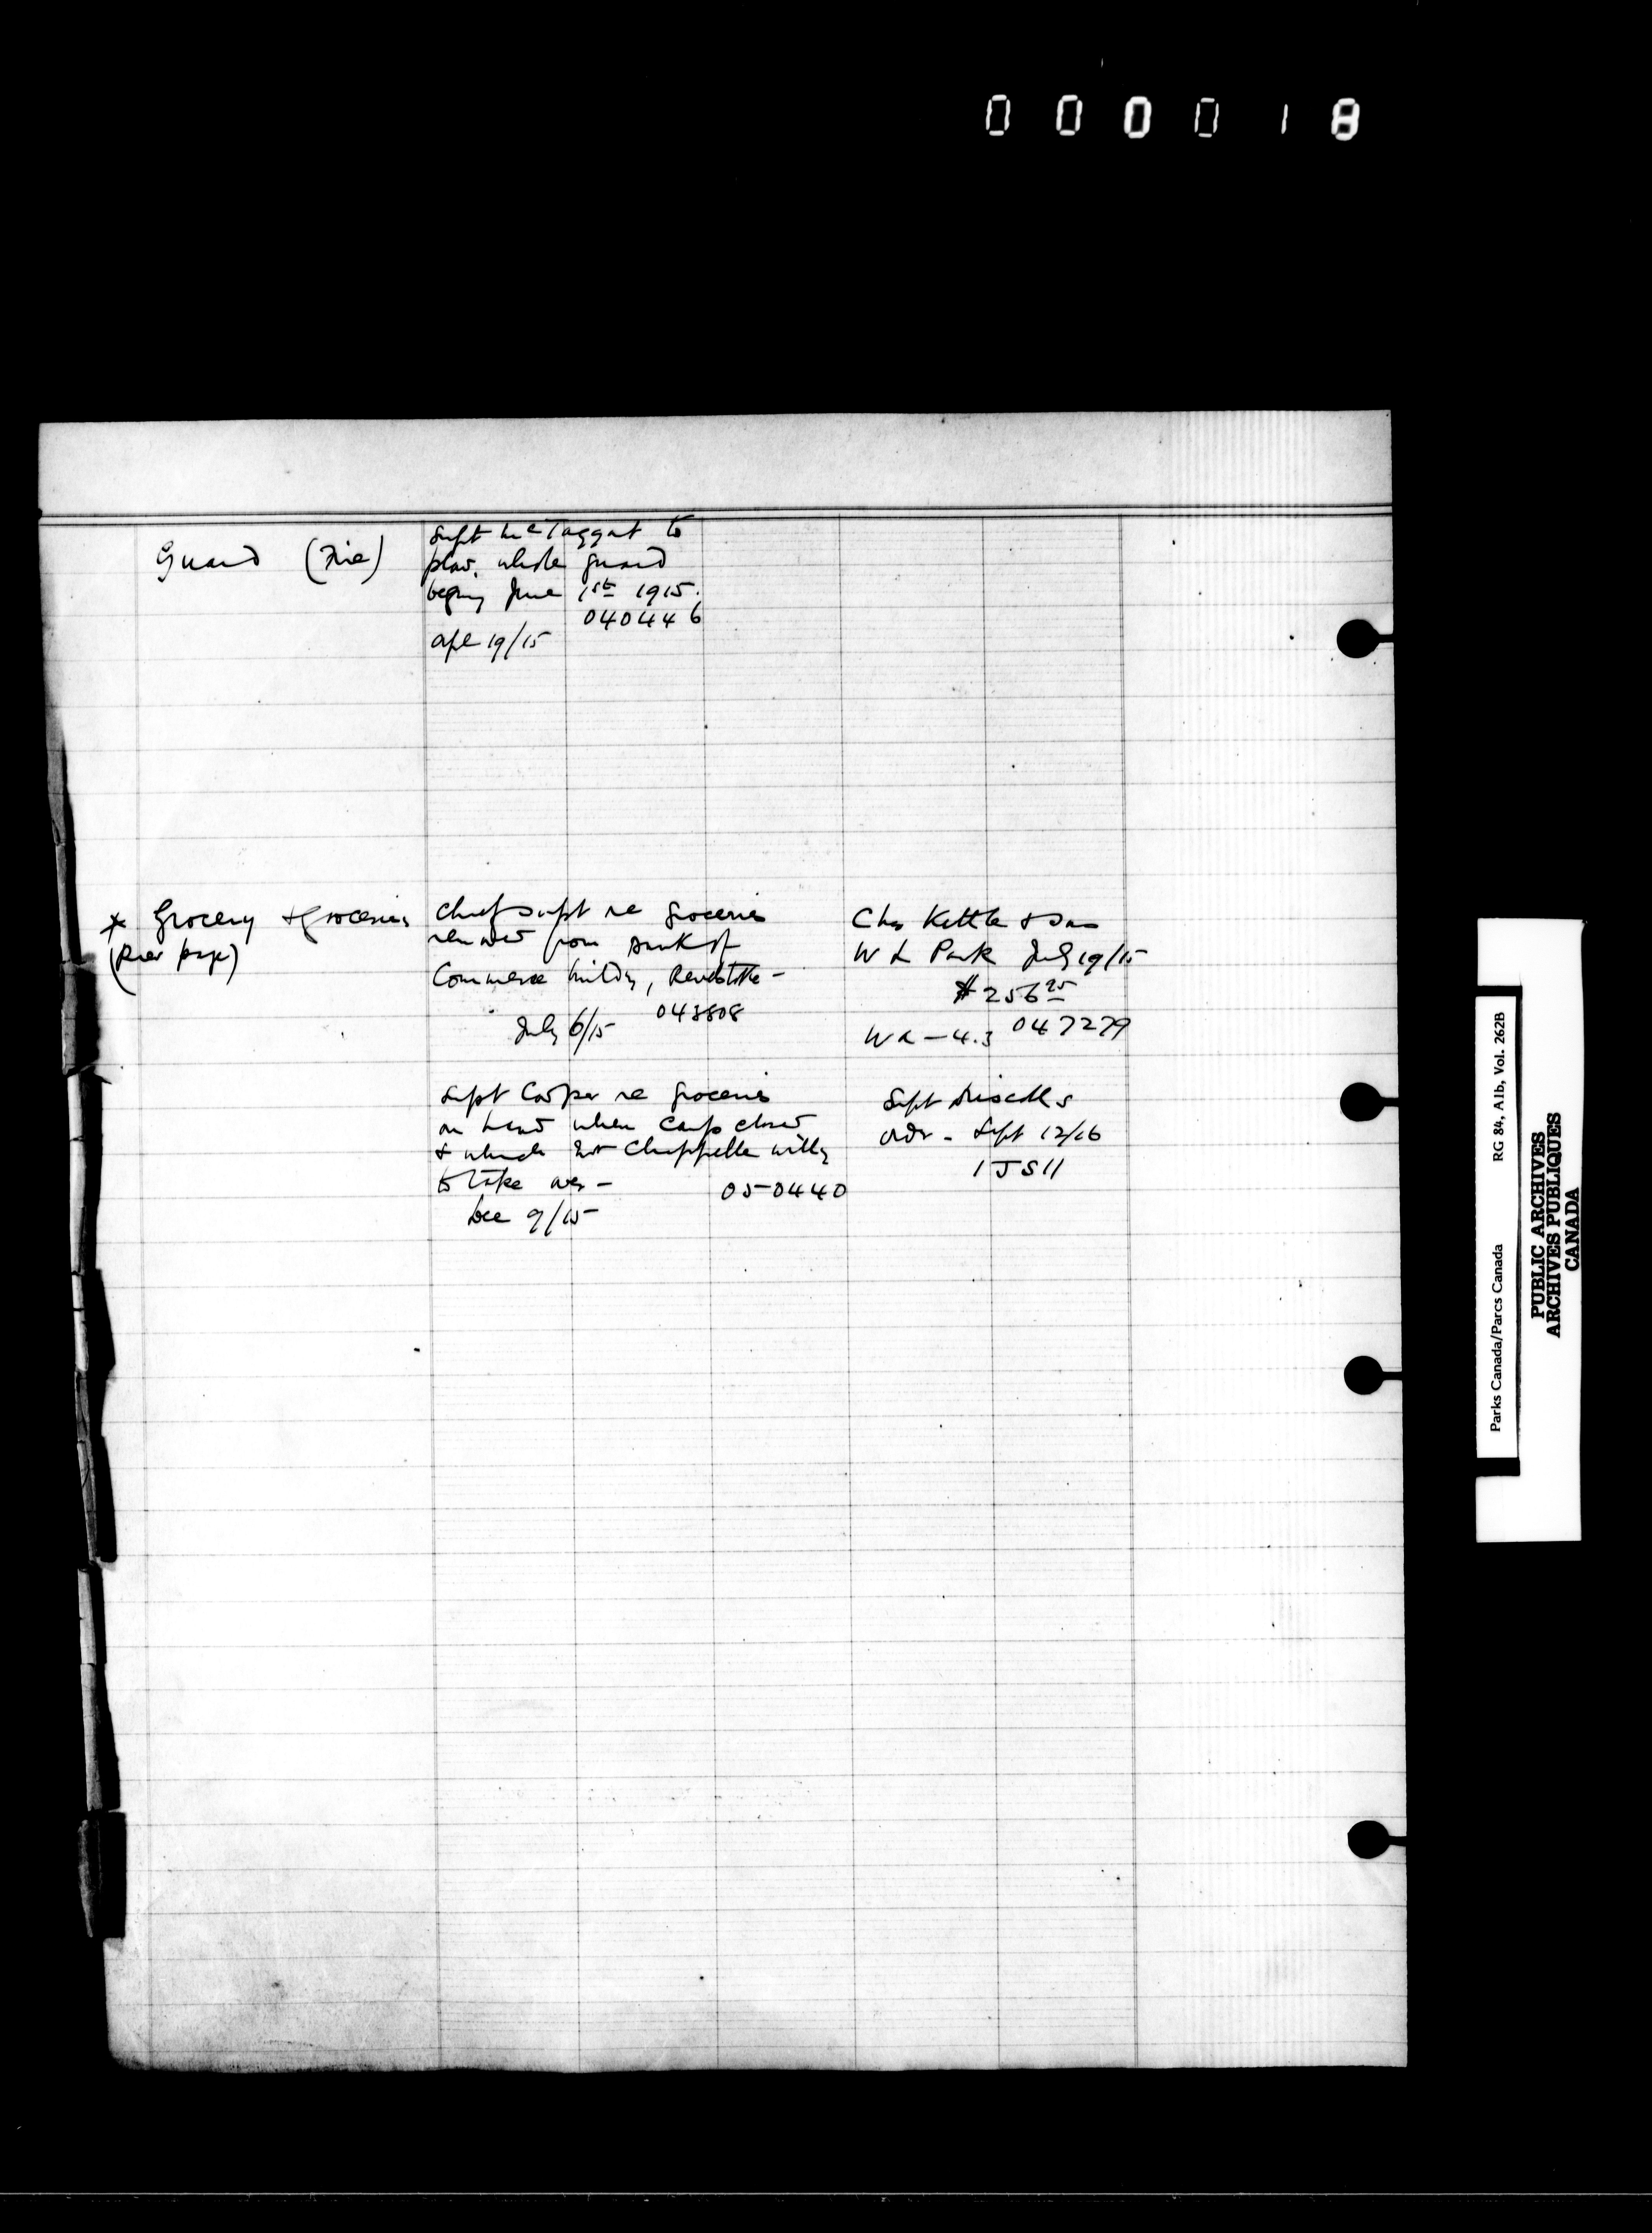 000018
Guard (Fire)
Supt McTaggart to
plow whole guard
beging June 1st 1915.
040446
Apl 19/15
x Grocery & Groceries
(Over page)
Chief Supt re groceries
removed from Bank of
Commerce buildg, Revelstoke -
July 6/15 043808
Chas Kettle & Son
W L Park July 19/15
$256 25
WL - 4.3 047279
Supt Cooper re groceries
on hand when Camp closed
& which Chappelle willg
to take over -
050440
Dec 9/15
Supt Driscoll's
Ordr - Sept 12/16
1JS11
Parks Canada/Parcs Canada RG 84, A1b, Vol. 262B
PUBLIC ARCHIVES
ARCHIVES PUBLIQUES
CANADA